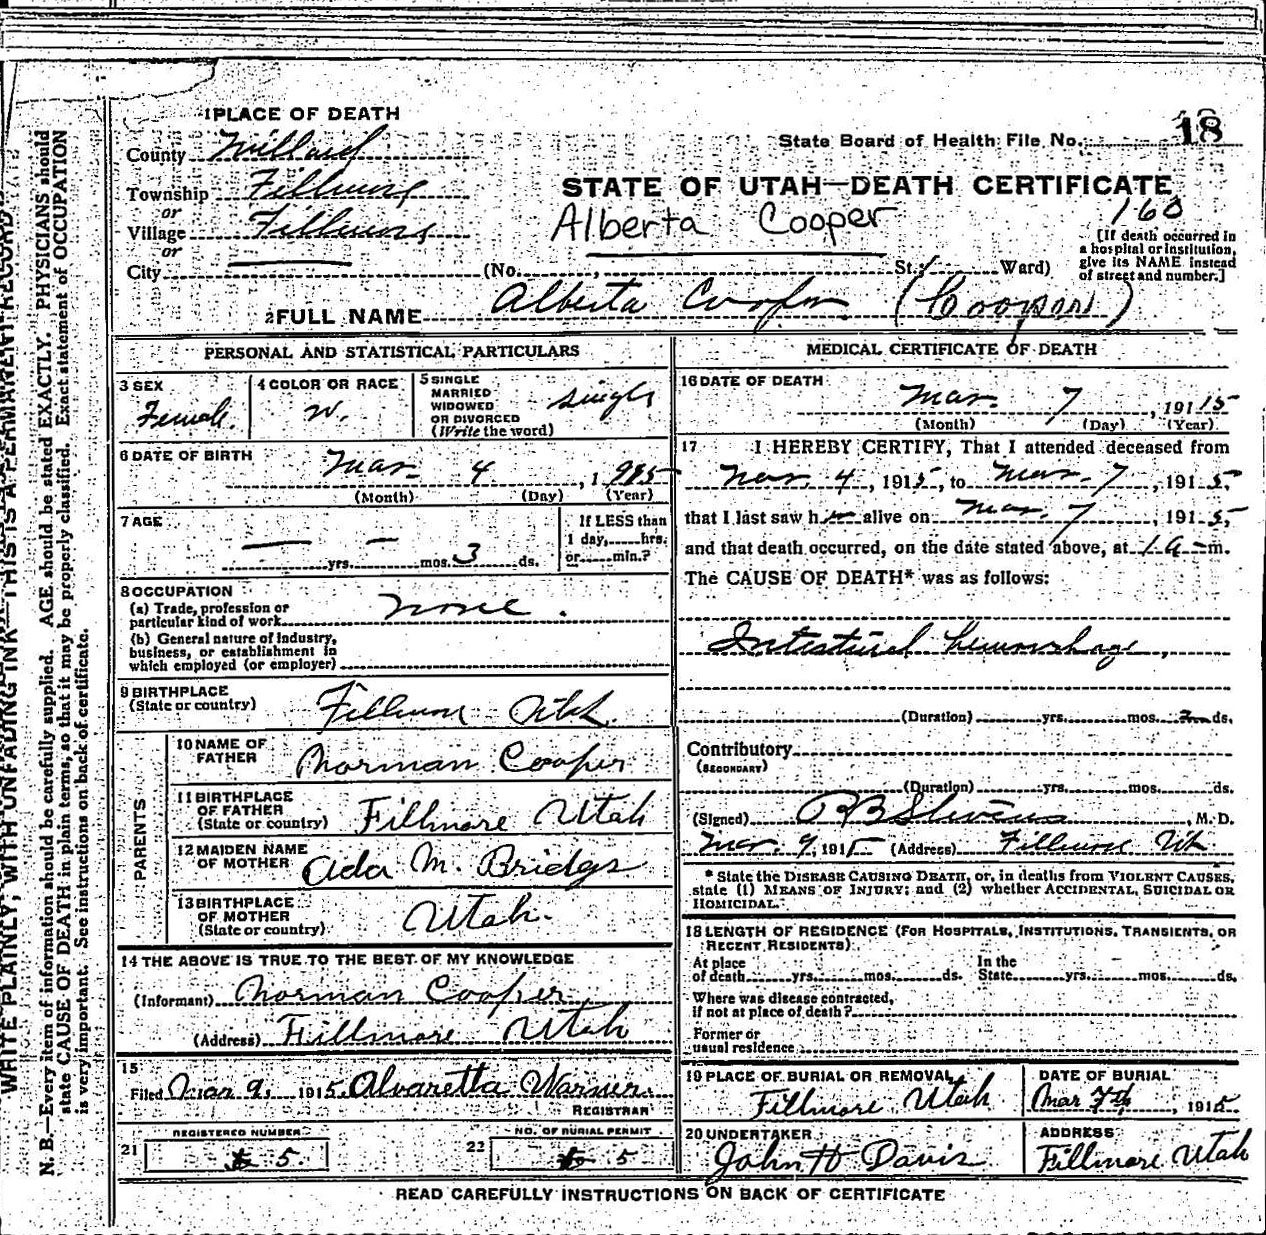 18
1 PLACE OF DEATH
County Millard
State Board of Health File No.
Township Fillmore
or
Village Fillmore
or
City
STATE OF UTAH—DEATH CERTIFICATE
Alberta Cooper
160
[If death occurred in
a hospital or institution,
give its NAME instead
of street and number.]
(No. , St.; Ward)
2 FULL NAME Alberta Cooper (Cooper)
PERSONAL AND STATISTICAL PARTICULARS
3 SEX
Female.
4 COLOR OR RACE
W.
5 SINGLE
MARRIED
WIDOWED
OR DIVORCED
(Write the word)
single
6 DATE OF BIRTH
Mar 4 , 1915
(Month) (Day) (Year)
7 AGE
— yrs. — mos. 3 ds.
If LESS than
1 day, hrs.
or min.?
8 OCCUPATION
(a) Trade, profession or
particular kind of work none.
(b) General nature of industry,
business, or establishment in
which employed (or employer)
9 BIRTHPLACE
(State or country) Fillmore Utah.
PARENTS
10 NAME OF
FATHER Norman Cooper
11 BIRTHPLACE
OF FATHER
(State or country) Fillmore Utah
12 MAIDEN NAME
OF MOTHER Ada M. Bridges
13 BIRTHPLACE
OF MOTHER
(State or country) Utah.
14 THE ABOVE IS TRUE TO THE BEST OF MY KNOWLEDGE
(Informant) Norman Cooper
(Address) Fillmore Utah
15
Filed Mar 9, 1915. Alvaretta Warner.
REGISTRAR
REGISTERED NUMBER
21 5.
NO. OF BURIAL PERMIT
22 5
MEDICAL CERTIFICATE OF DEATH
16 DATE OF DEATH
Mar. 7 , 1915
(Month) (Day) (Year)
17 I HEREBY CERTIFY, That I attended deceased from
Mar 4, 1915, to Mar. 7, 1915,
that I last saw her alive on Mar. 7, 1915,
and that death occurred, on the date stated above, at 1 a m.
The CAUSE OF DEATH* was as follows:
Intestinal hemorrhage,
(Duration) yrs. mos. 2 ds.
Contributory
(SECONDARY)
(Duration) yrs. mos. ds.
(Signed) Stevens, M. D.
Mar. 9, 1915 (Address) Fillmore Ut
* State the DISEASE CAUSING DEATH, or, in deaths from VIOLENT CAUSES,
state (1) MEANS OF INJURY; and (2) whether ACCIDENTAL, SUICIDAL OR
HOMICIDAL.
18 LENGTH OF RESIDENCE (FOR HOSPITALS, INSTITUTIONS, TRANSIENTS, OR
RECENT RESIDENTS)
At place
of death yrs. mos. ds.
In the
State yrs. mos. ds.
Where was disease contracted,
if not at place of death?
Former or
usual residence
19 PLACE OF BURIAL OR REMOVAL
Fillmore Utah
DATE OF BURIAL
Mar 7th, 1915
20 UNDERTAKER
John H Davis
ADDRESS
Fillmore Utah
READ CAREFULLY INSTRUCTIONS ON BACK OF CERTIFICATE
WRITE PLAINLY, WITH UNFADING INK—THIS IS A PERMANENT RECORD
N. B.—Every item of information should be carefully supplied. AGE should be stated EXACTLY. PHYSICIANS should
state CAUSE OF DEATH in plain terms, so that it may be properly classified. Exact statement of OCCUPATION
is very important. See instructions on back of certificate.